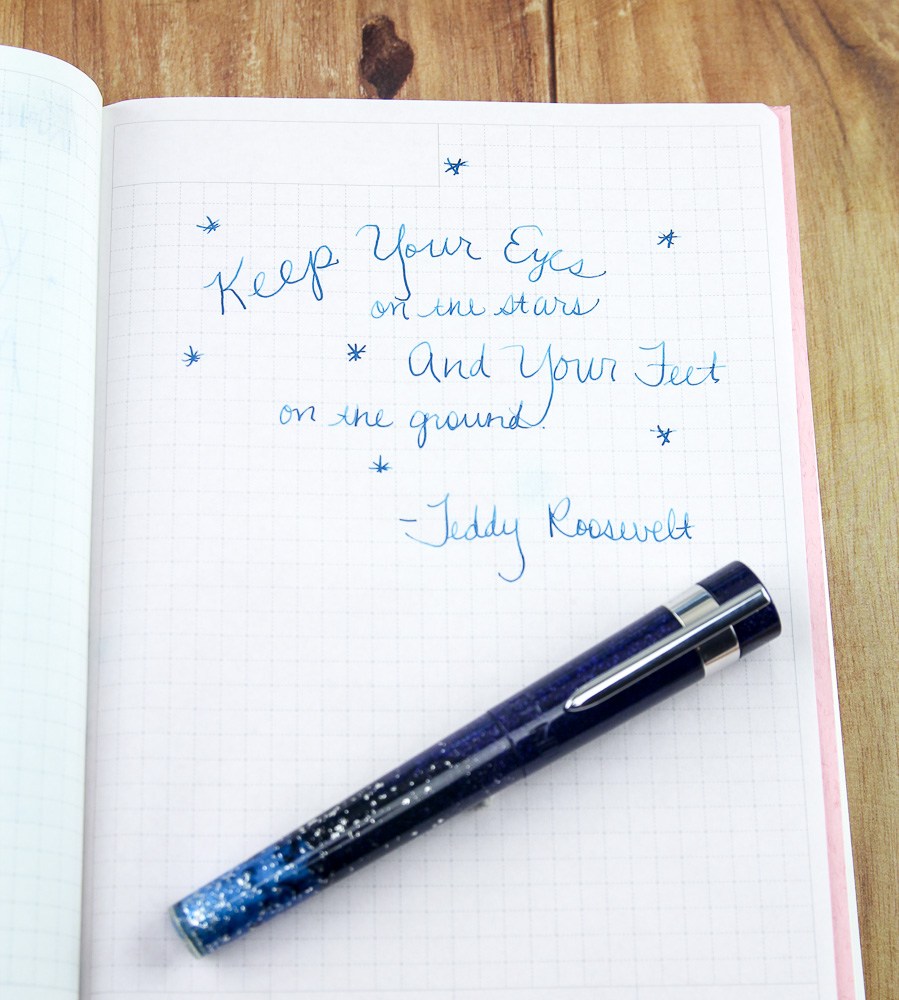 Keep Your Eyes
on the stars
And Your Feet
on the ground.
-Teddy Roosevelt